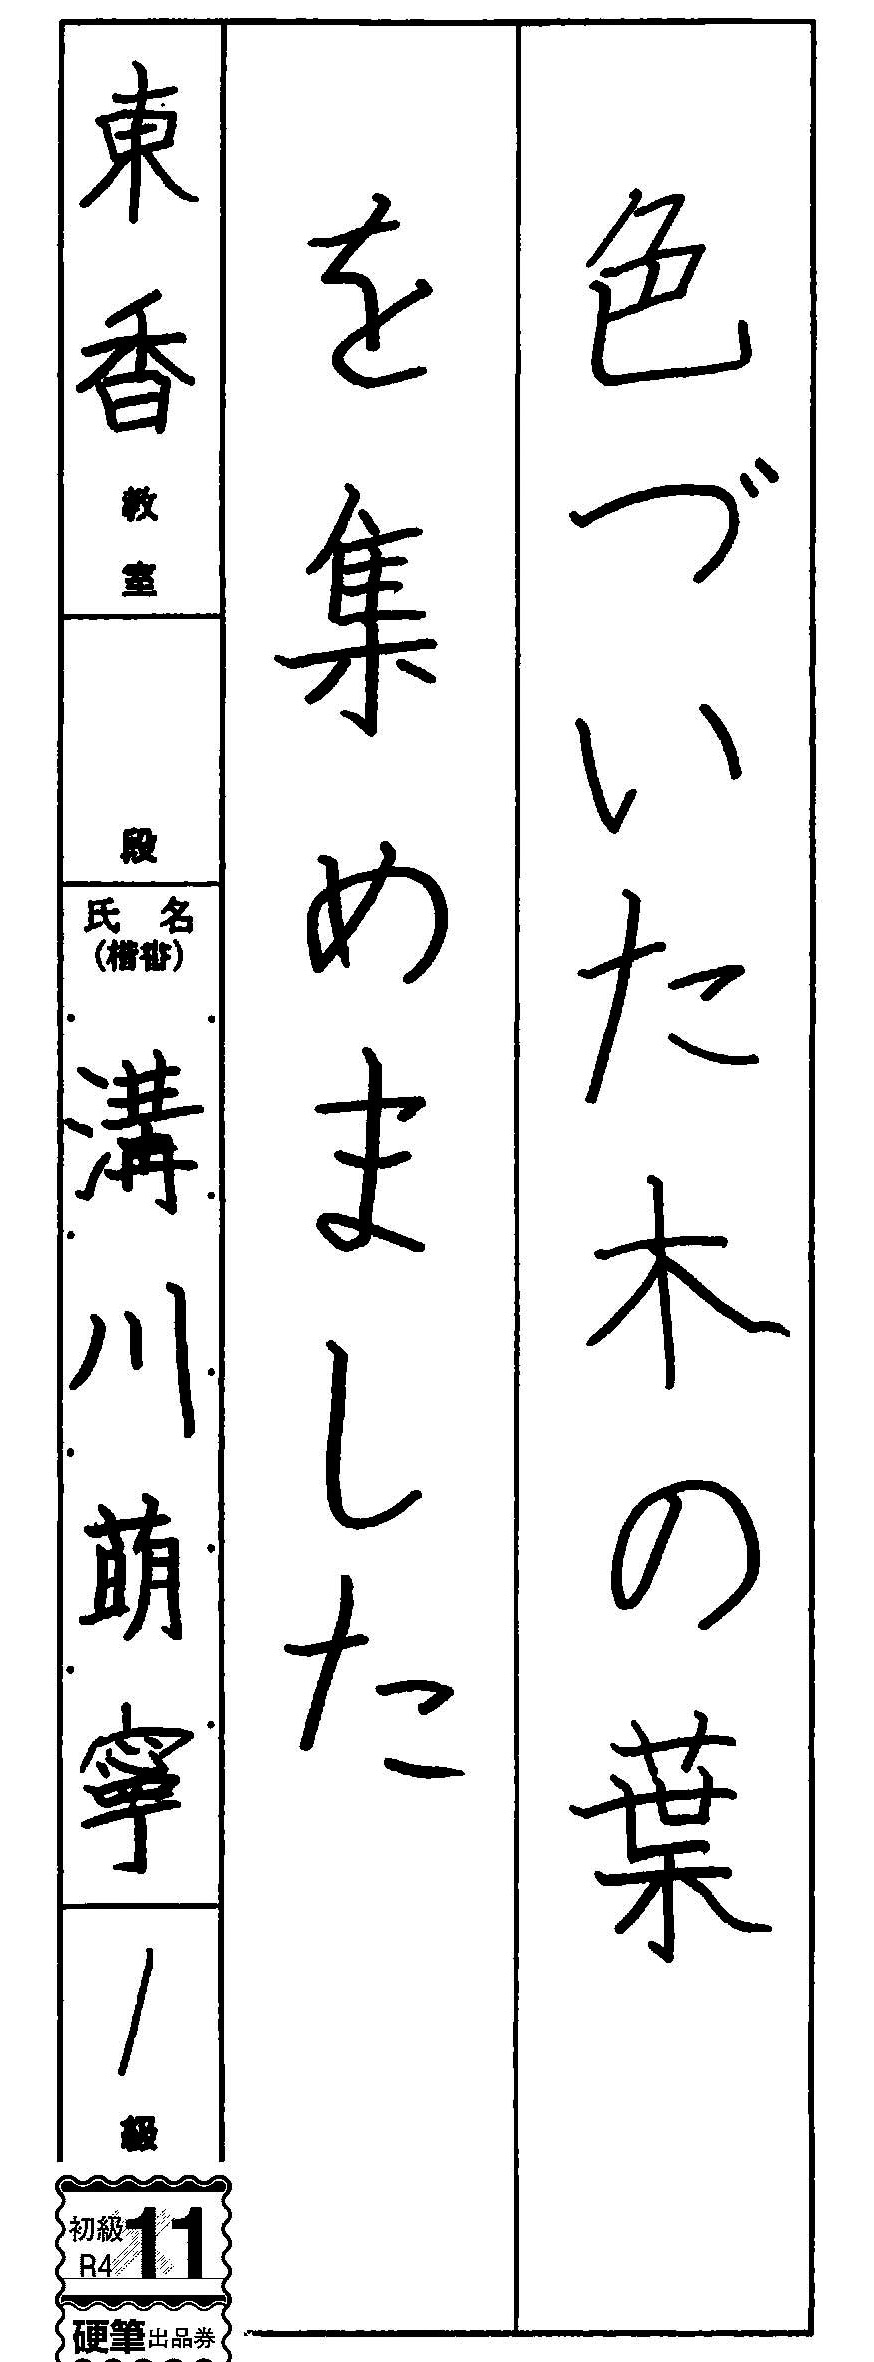 色づいた木の葉
を集めました
東香教室
段
氏名
(楷書)
溝川萌寧
1級
初級
R4
11
硬筆出品券